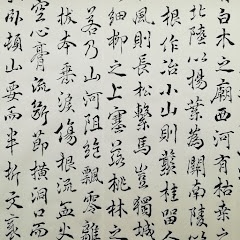 白木之廟西河有枯桑
北陸以楊葉為關南陵以
根作冶小山則叢桂留人
風則長松繫馬豈獨城
細柳之上塞落桃林之
若乃山河阻絕飄零離
拔本垂淚傷根瀝血火
空心膏流斷節橫洞口而
臥頓山要而半折文